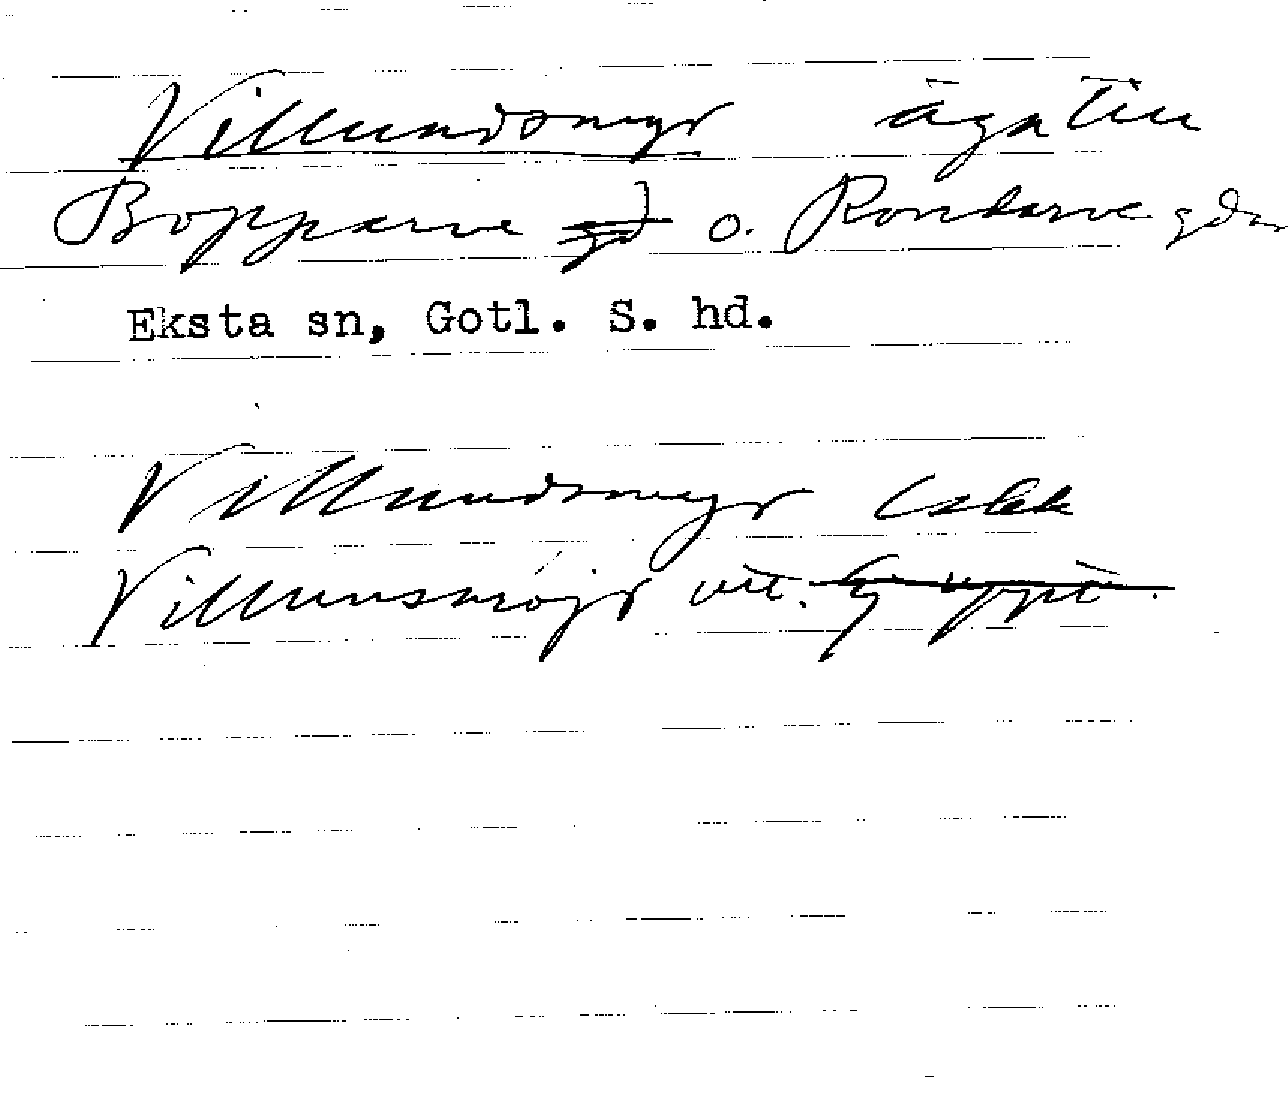 Villundsmyr äga till
Bopparve gd o. Ronnarve gdr
Eksta sn, Gotl. S. hd.
Villundsmyr Lskk
Villunsmöjr utt.